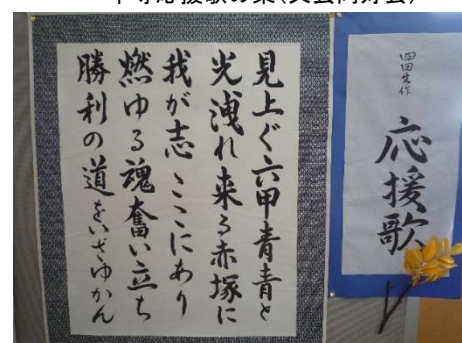 応援歌
見上ぐ六甲青青と
光洩れ来る赤塚に
我が志ここにあり
燃ゆる魂奮い立ち
勝利の道をいざゆかん